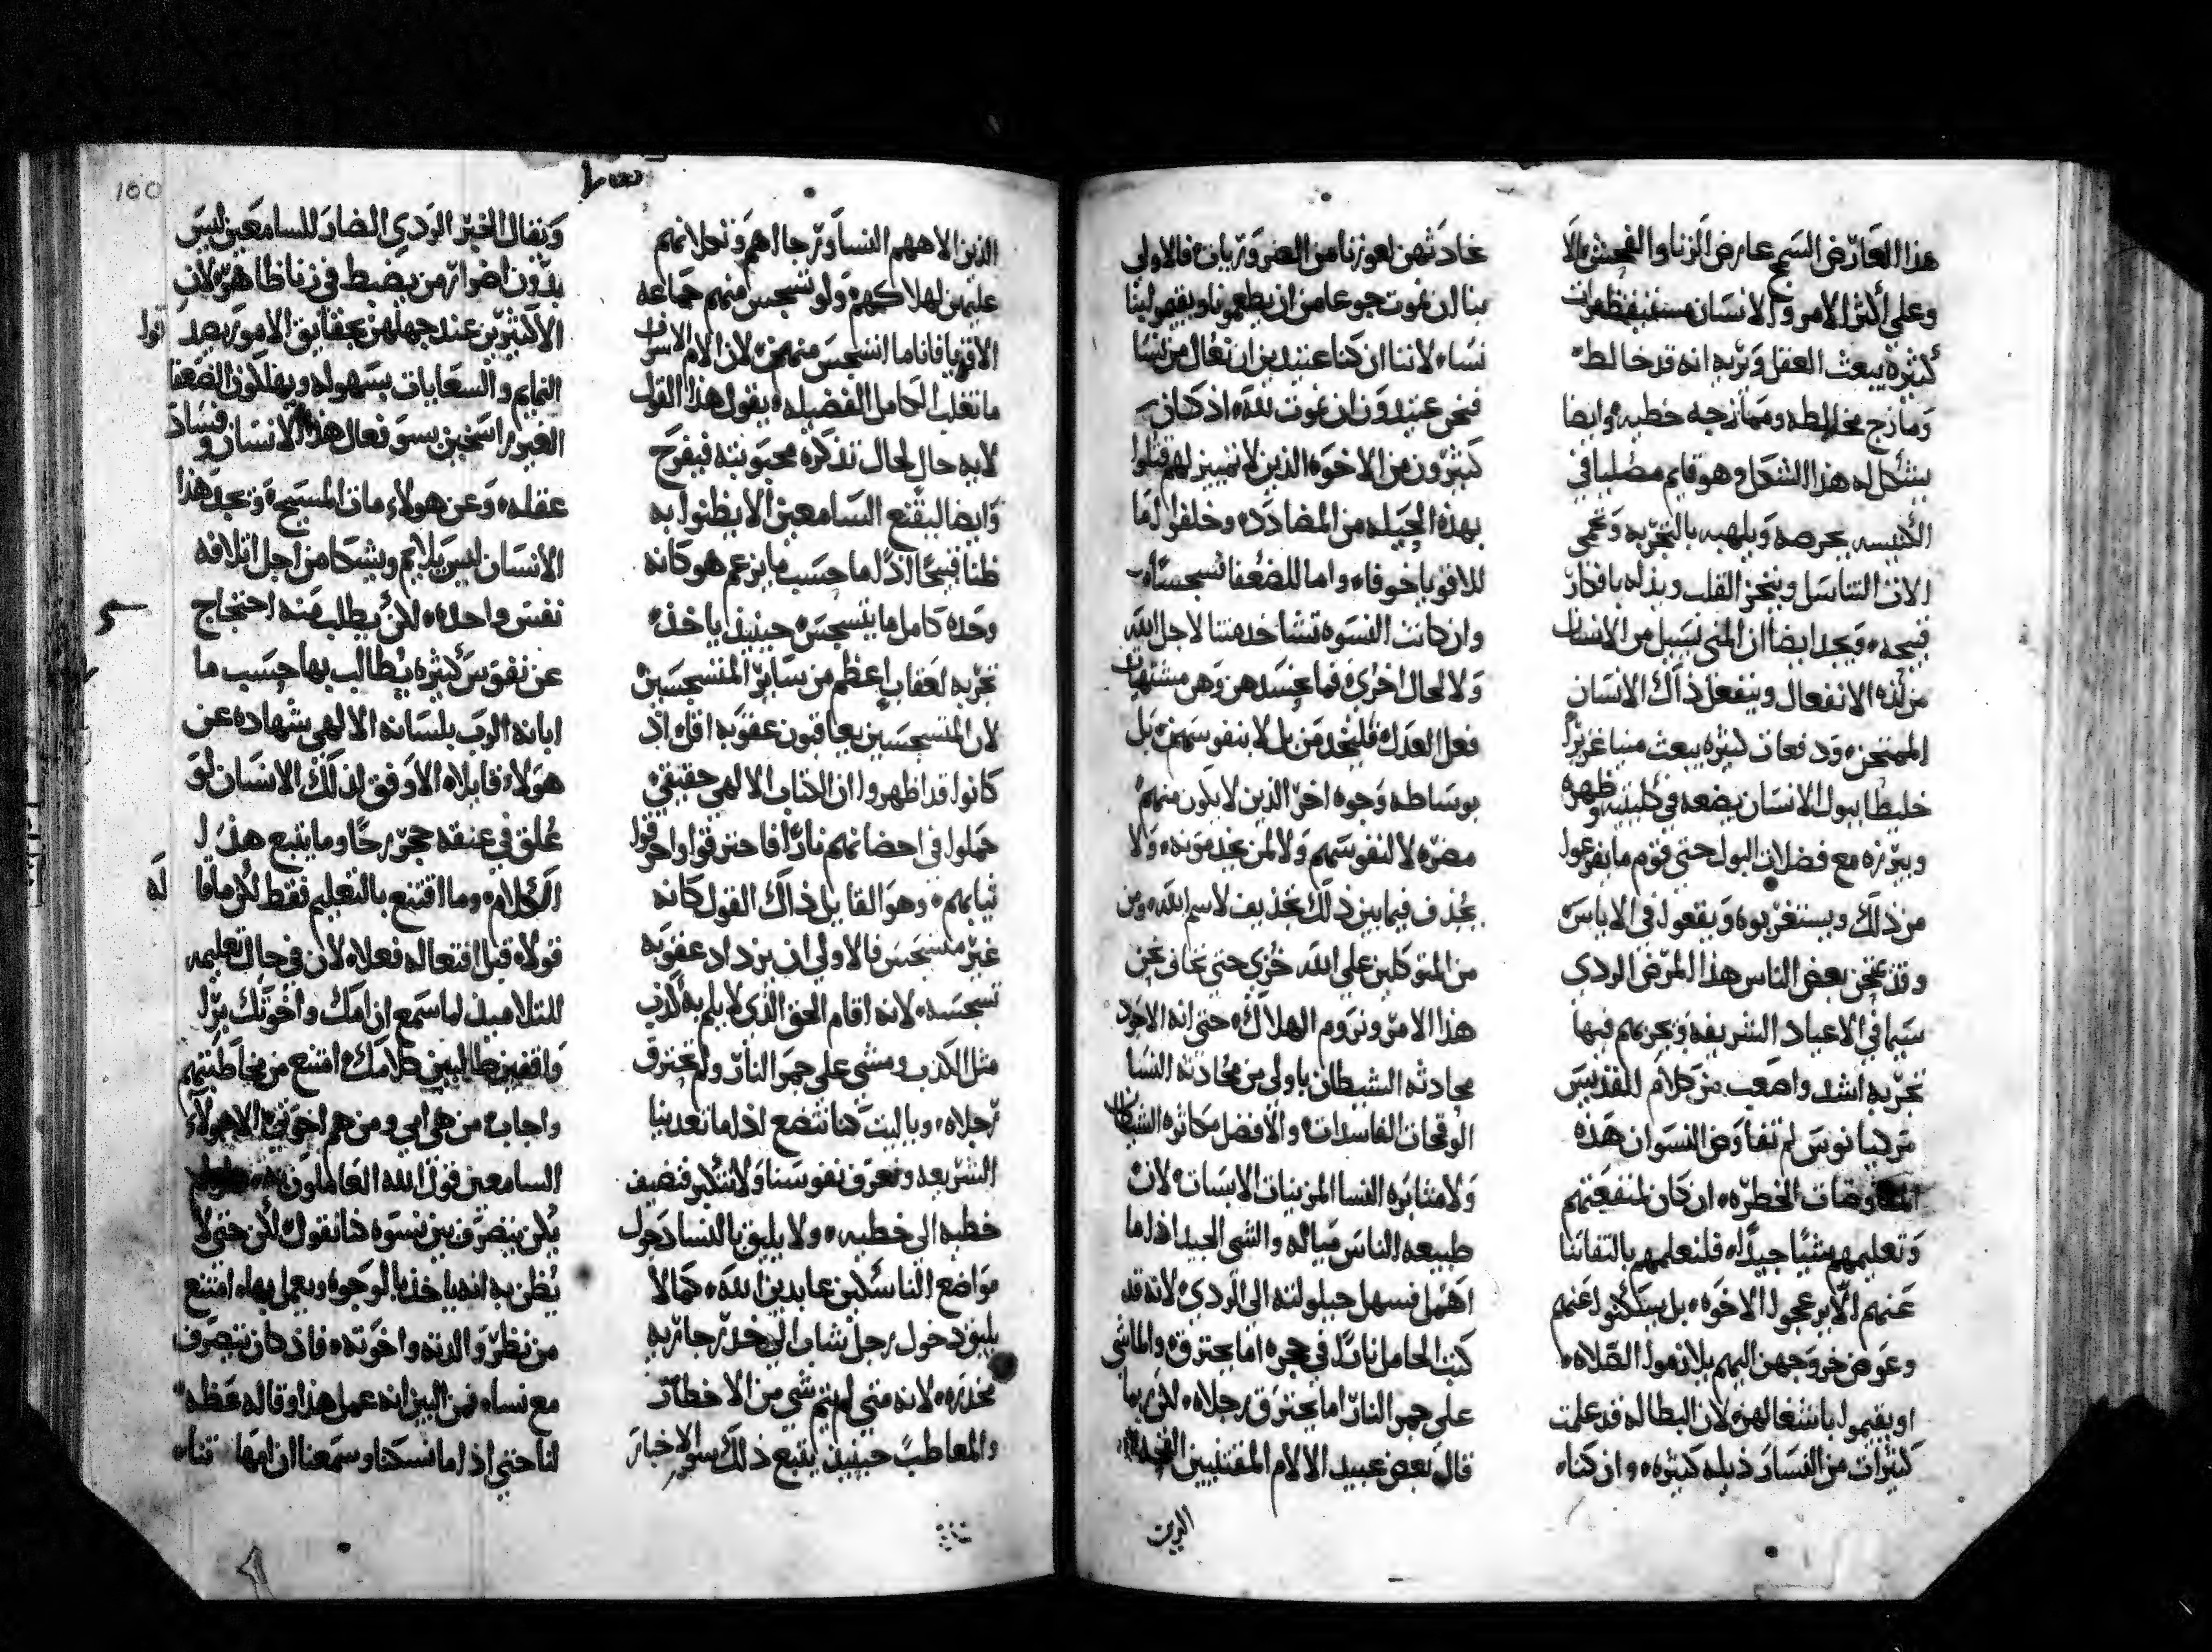 هذا العارض السمج عارض الزنا والفحش الا
وعلي اكثر الامر والانسان مستيقظ مرات
كثيره يبعث العقل ويريه انه قد خالط
ومازج مخالطه وممازجه خطيه وايضا
يشكل له هذا الشكل وهو قايم مصليا في
الكنيسه بحرصه ويلهبه بالتجربه وتحمي
الات التناسل وينحز القلب ويذله بافكار
قبيحه ويجد ايضا ان المني يسيل من الانسان
من لذه الانفعال وينفعل ذاك الانسان
الممتحن ودفعات كثيره يبعث منيا غزيرا
خليطا ببول الانسان يضعه في كليتيه وظهره
ويبرزه مع فضلات البول حتي قوم ما يفزعوا
من ذلك ويستغربوه ويقعوا في الاياس
وقد يمتحن بعض الناس هذا المرض الردي
سيما في الاعياد الشريفه ويجربهم فيها
تجربه اشد واصعب من كلام للقديس
مركيانوس لم تفاوض النسوان هذه
المفاوضات الخطره ان كان لمنفعتهم
وتعليمهم شيًا جيدًا فلنعلمهم بالتفاتنا
عنهم الا يزعجوا الاخوه بل يسكتوا عنهم
وعوض خروجهن اليهم يلازموا الصلاه
او يقيموا باشغالهن لان البطاله قد علمت
كثيرات من الفساد ذيله كثيره وان كنا
عادتهن لعوزنا من الضروريات فالاولي
بنا ان نموت جوعا من ان يطعمونا ويقيموا لينا
نساء لاننا ان كنا عتيدين ان نعال من نسا
فنحن عتيدون ان نموت لله اذ كان
كثيرون من الاخوه الذين لا تمييز لهم قتلوا
بهذه الحيله من المضادد وخلفوا لما
للاقويا خوفا واما للضعفا تسجسًا
وان كانت النسوه تشا خدمتنا لاجل الله
ولا لحال اخري فما تحسدهن وهن مشتهيات
فعل العدل فليخدمن بل لا بنفوسهن بل
بوساطه وجوه اخر الذين لا يكون منهم
مضره لا لنفوسهم ولا لمن يخدمونه ولا
يجذف فيما بين ذلك تجذيف لاسم الله ومن
من المتوكلين علي الله خزي حتي نخاف نحن
هذا الامر ونروم الهلاك حتي انه الاجود
محادثه الشيطان باولي من محادثه النسا
الوقحات الفاسدات والافضل مكاثره الشيطان
ولا مثابره النسا المزينات الابسات لان
طبيعه الناس مياله والشي الجيد اذا ما
اهمل فسهل حيلولته الي الردي لانه قد
كتب الحامل نارًا في حجره اما يحترق والماشي
علي جمر النار اما يحترق رجلاه لكن ربما
قال بعض عبيد الالام المفتنيين القحه
الديت
الذين الاههم النسا ورجااهم وتكلانهم
عليهن لهلاكهم ولو تسجس منهم جماعه
الاقويا فانا ما اتسجس منهن لان الام الاسر
ما تغلب الكامل الفضيله يقول هذا القول
لا به حال لحال تذكره محبوبته فيفرح
وايضا ليقنع السامعين الا يظنوا به
ظنا قبيحًا اذا ما حسب ما يزعم هو كانه
وحده كامل ما يتسجس حينيذ ياخذ
تجربه لعقاب اعظم من ساير المتسجسين
لان المتسجسين يعاقبون عقوبه اقل اذ
كانوا قد اظهروا ان الكتاب الالهي حقيقي
حملوا في احضانهم نارًا فاحترقوا واحرقوا
ثيابهم وهو القايل ذاك القول كانه
غير متسجس فالاولي ان يزداد عقوبه
تسجسه لانه اقام الحق الذي لا يلم به كذب
مثل الكذب ومشي علي جمر النار ولم تحترق
رجلاه وياليت كنا نتضع اذا ما تعدينا
الشريعه ونعرف نفوسنا ولا نتكبر فنضيف
خطيه الي خطيه ولا يليق بالنسا دخول
مواضع الناسكين عابدين الله كما لا
يليق دخول رجل شاب الي خدر جاريه
مخدره لانه متي لم يتم شي من الاخطار
والمعاطب حينيذ يتبع ذلك سو الاخبار
ويقال الخبر الردي الضار للسامعين ليس
بدون اضرار من يضبط في زنا ظاهر لان
الاكثرين عند جهلهم بحقايق الامور يصد
النمايم والسعايات بسهوله ويهلكون الضعفا
الغير راسخين بسو فعال هذا الانسان وفساد
عقله وعن هولاء مات المسيح وتجد هذا
الانسان ليس يلايم ويشكا من اجل اتلافه
نفس واحده لكن يطلب منه احتجاج
عن نفوس كثيره يطالب بها حسب ما
ابانه الرب بلسانه الالهي شهاده عن
هولاء قايلا الاوفق لذلك الانسان لو
علق في عنقه حجر رحًا وما يتبع هذا
الكلام وما اقتنع بالتعليم فقط لكن ما قا
له
قولا قبل افتعاله فعلا لان في حال تعليمه
للتلاميذ لما سمع ان امك واخوتك برا
واقفين طالبين كلامك امتنع من مخاطبتهم
واجاب من هي امي ومن هم اخوتي الا هولاء
السامعين قول الله العاملون
يكن يتصرف بين نسوه كما نقول لكن حتي لا
يظن به انه ياخذ بالوجوه ويعمل بها امتنع
من نظر والدته واخوته فاذ كان يتصرف
مع نساء فمن البين انه عمل هذا وقاله عظه
لنا حتي اذا ما نسكنا وسمعنا ان امها تنا